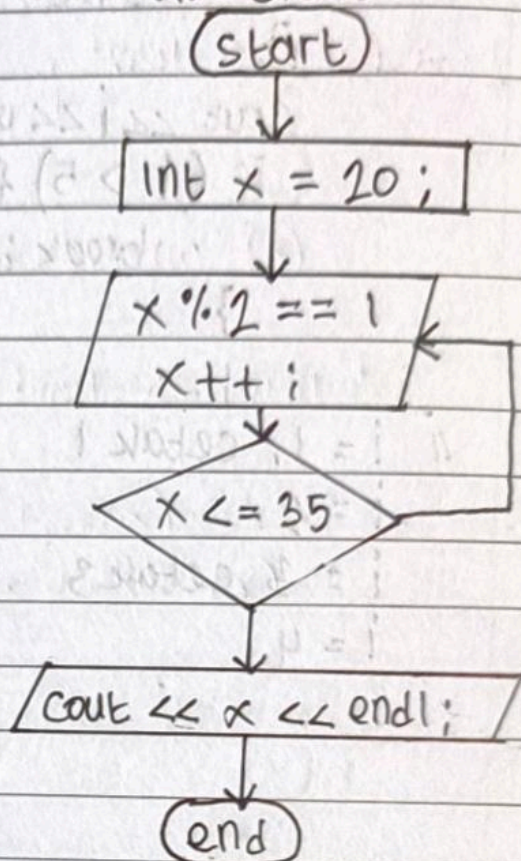 start
int x = 20 ;
x % 2 == 1
x++ ;
x <= 35
cout << x << endl;
end